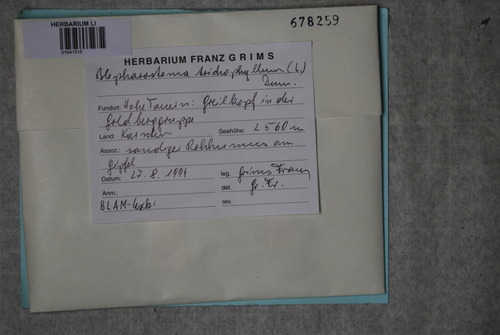 HERBARIUM LI
01641516
678259
HERBARIUM FRANZ GRIMS
Blepharostoma trichophyllum (L.)
Dum.
Fundort: Hohe Tauern: Greilkopf in der
Goldberggruppe
Land: Kärnten Seehöhe: 2560 m
Assoz.: sandiger Rohhumus am
Gipfel
Datum: 27. 8. 1991 leg. Grims Franz
Anm.: det. Gr. Fr.
BLAM-Exk. rev.